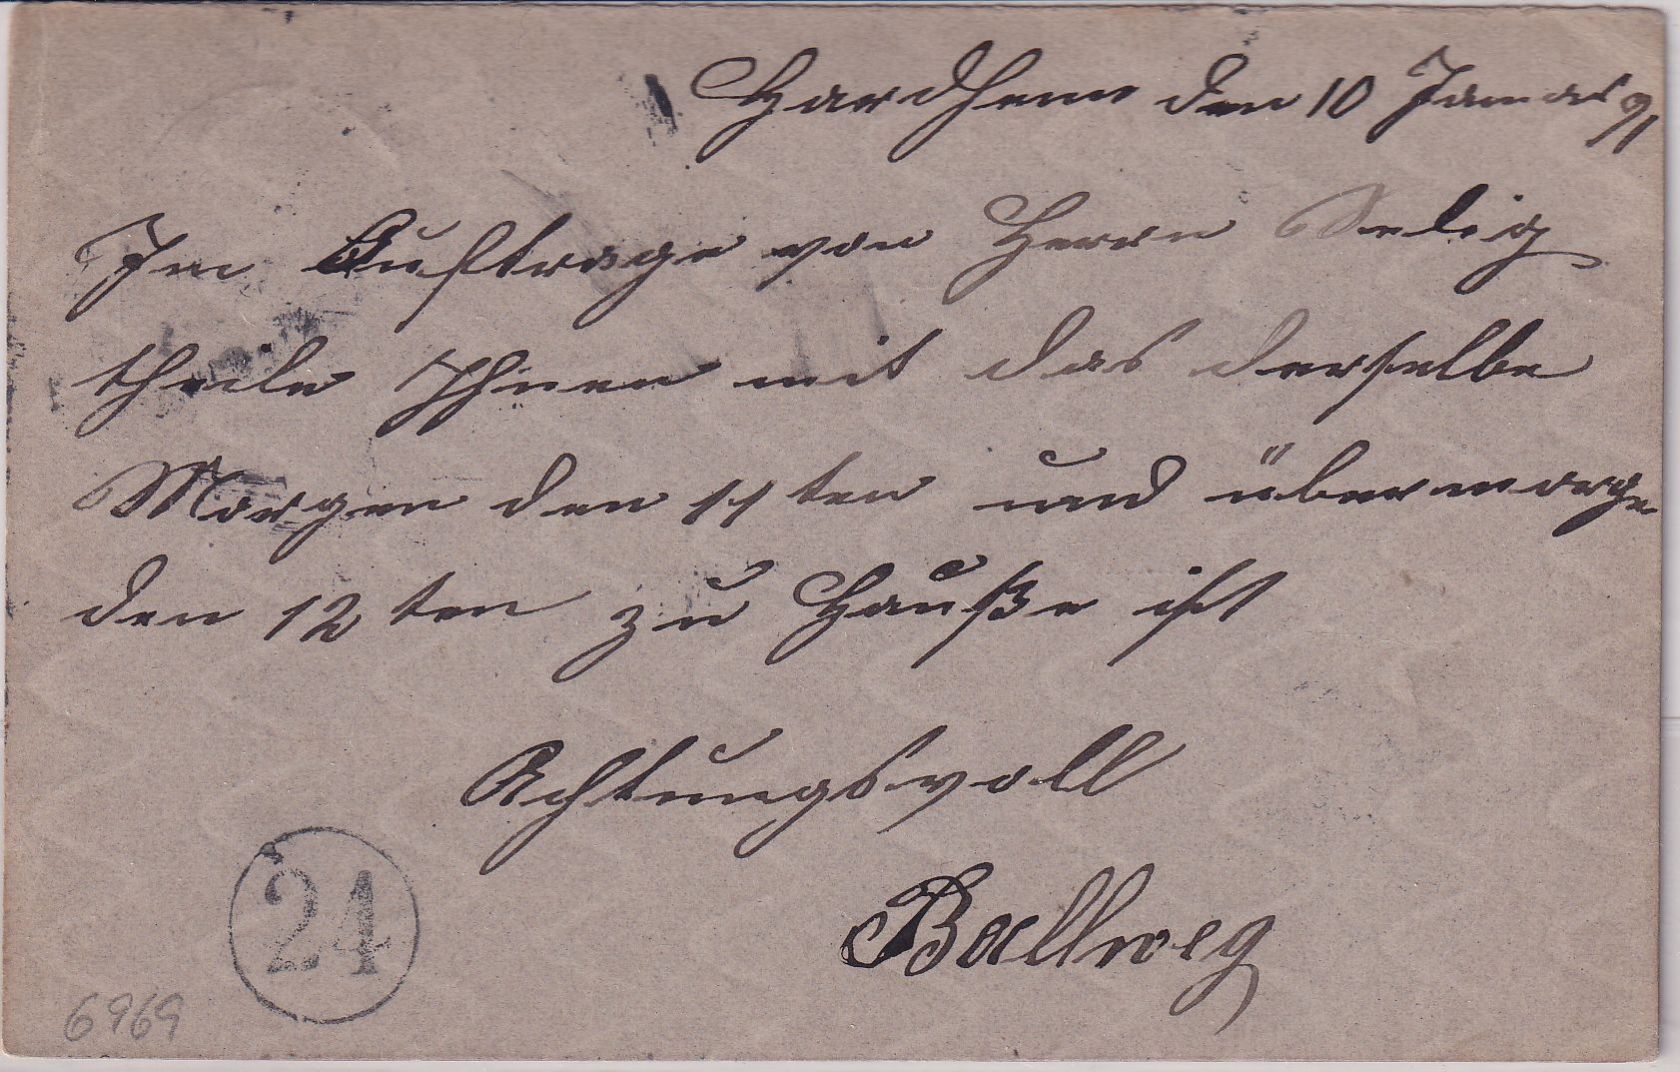 Hardheim den 10 Januar 91
Im Auftrage von Herrn Selig
theile Ihnen mit das derselbe
Morgen den 11ten und übermorge
den 12ten zu Hauße ist
Achtungsvoll
Ballweg
24
6969